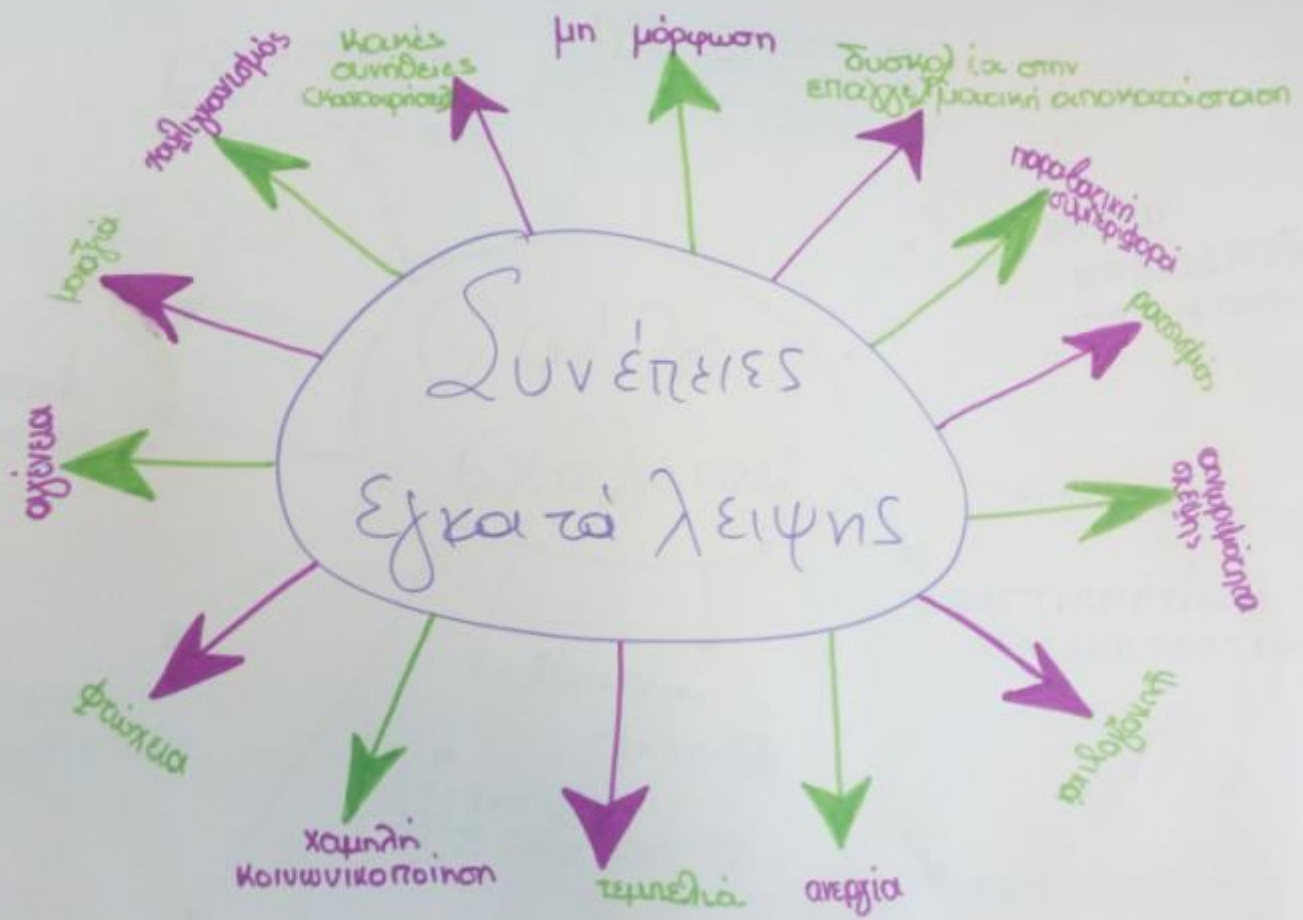 Συνέπειες
εγκατάλειψης
μη μόρφωση
δυσκολία στην
επαγγελματική αποκατάσταση
παραβατική
συμπεριφορά
ρατσισμός
σκέψης
ψυχολογικά
ανεργία
τεμπελιά
χαμηλή
κοινωνικοποίηση
φτώχεια
αγένεια
μοναξιά
χουλιγκανισμός
κακές
συνήθειες
(καταχρήσεις)